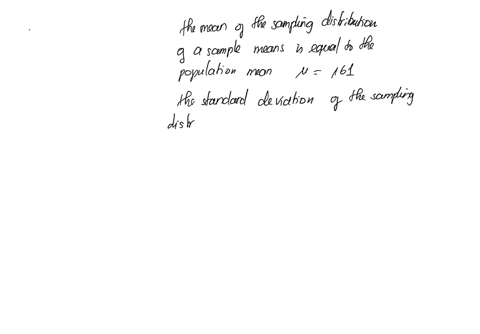 the mean of the sampling distribution
of a sample means is equal to the
population mean μ = 161
the standard deviation of the sampling
distr